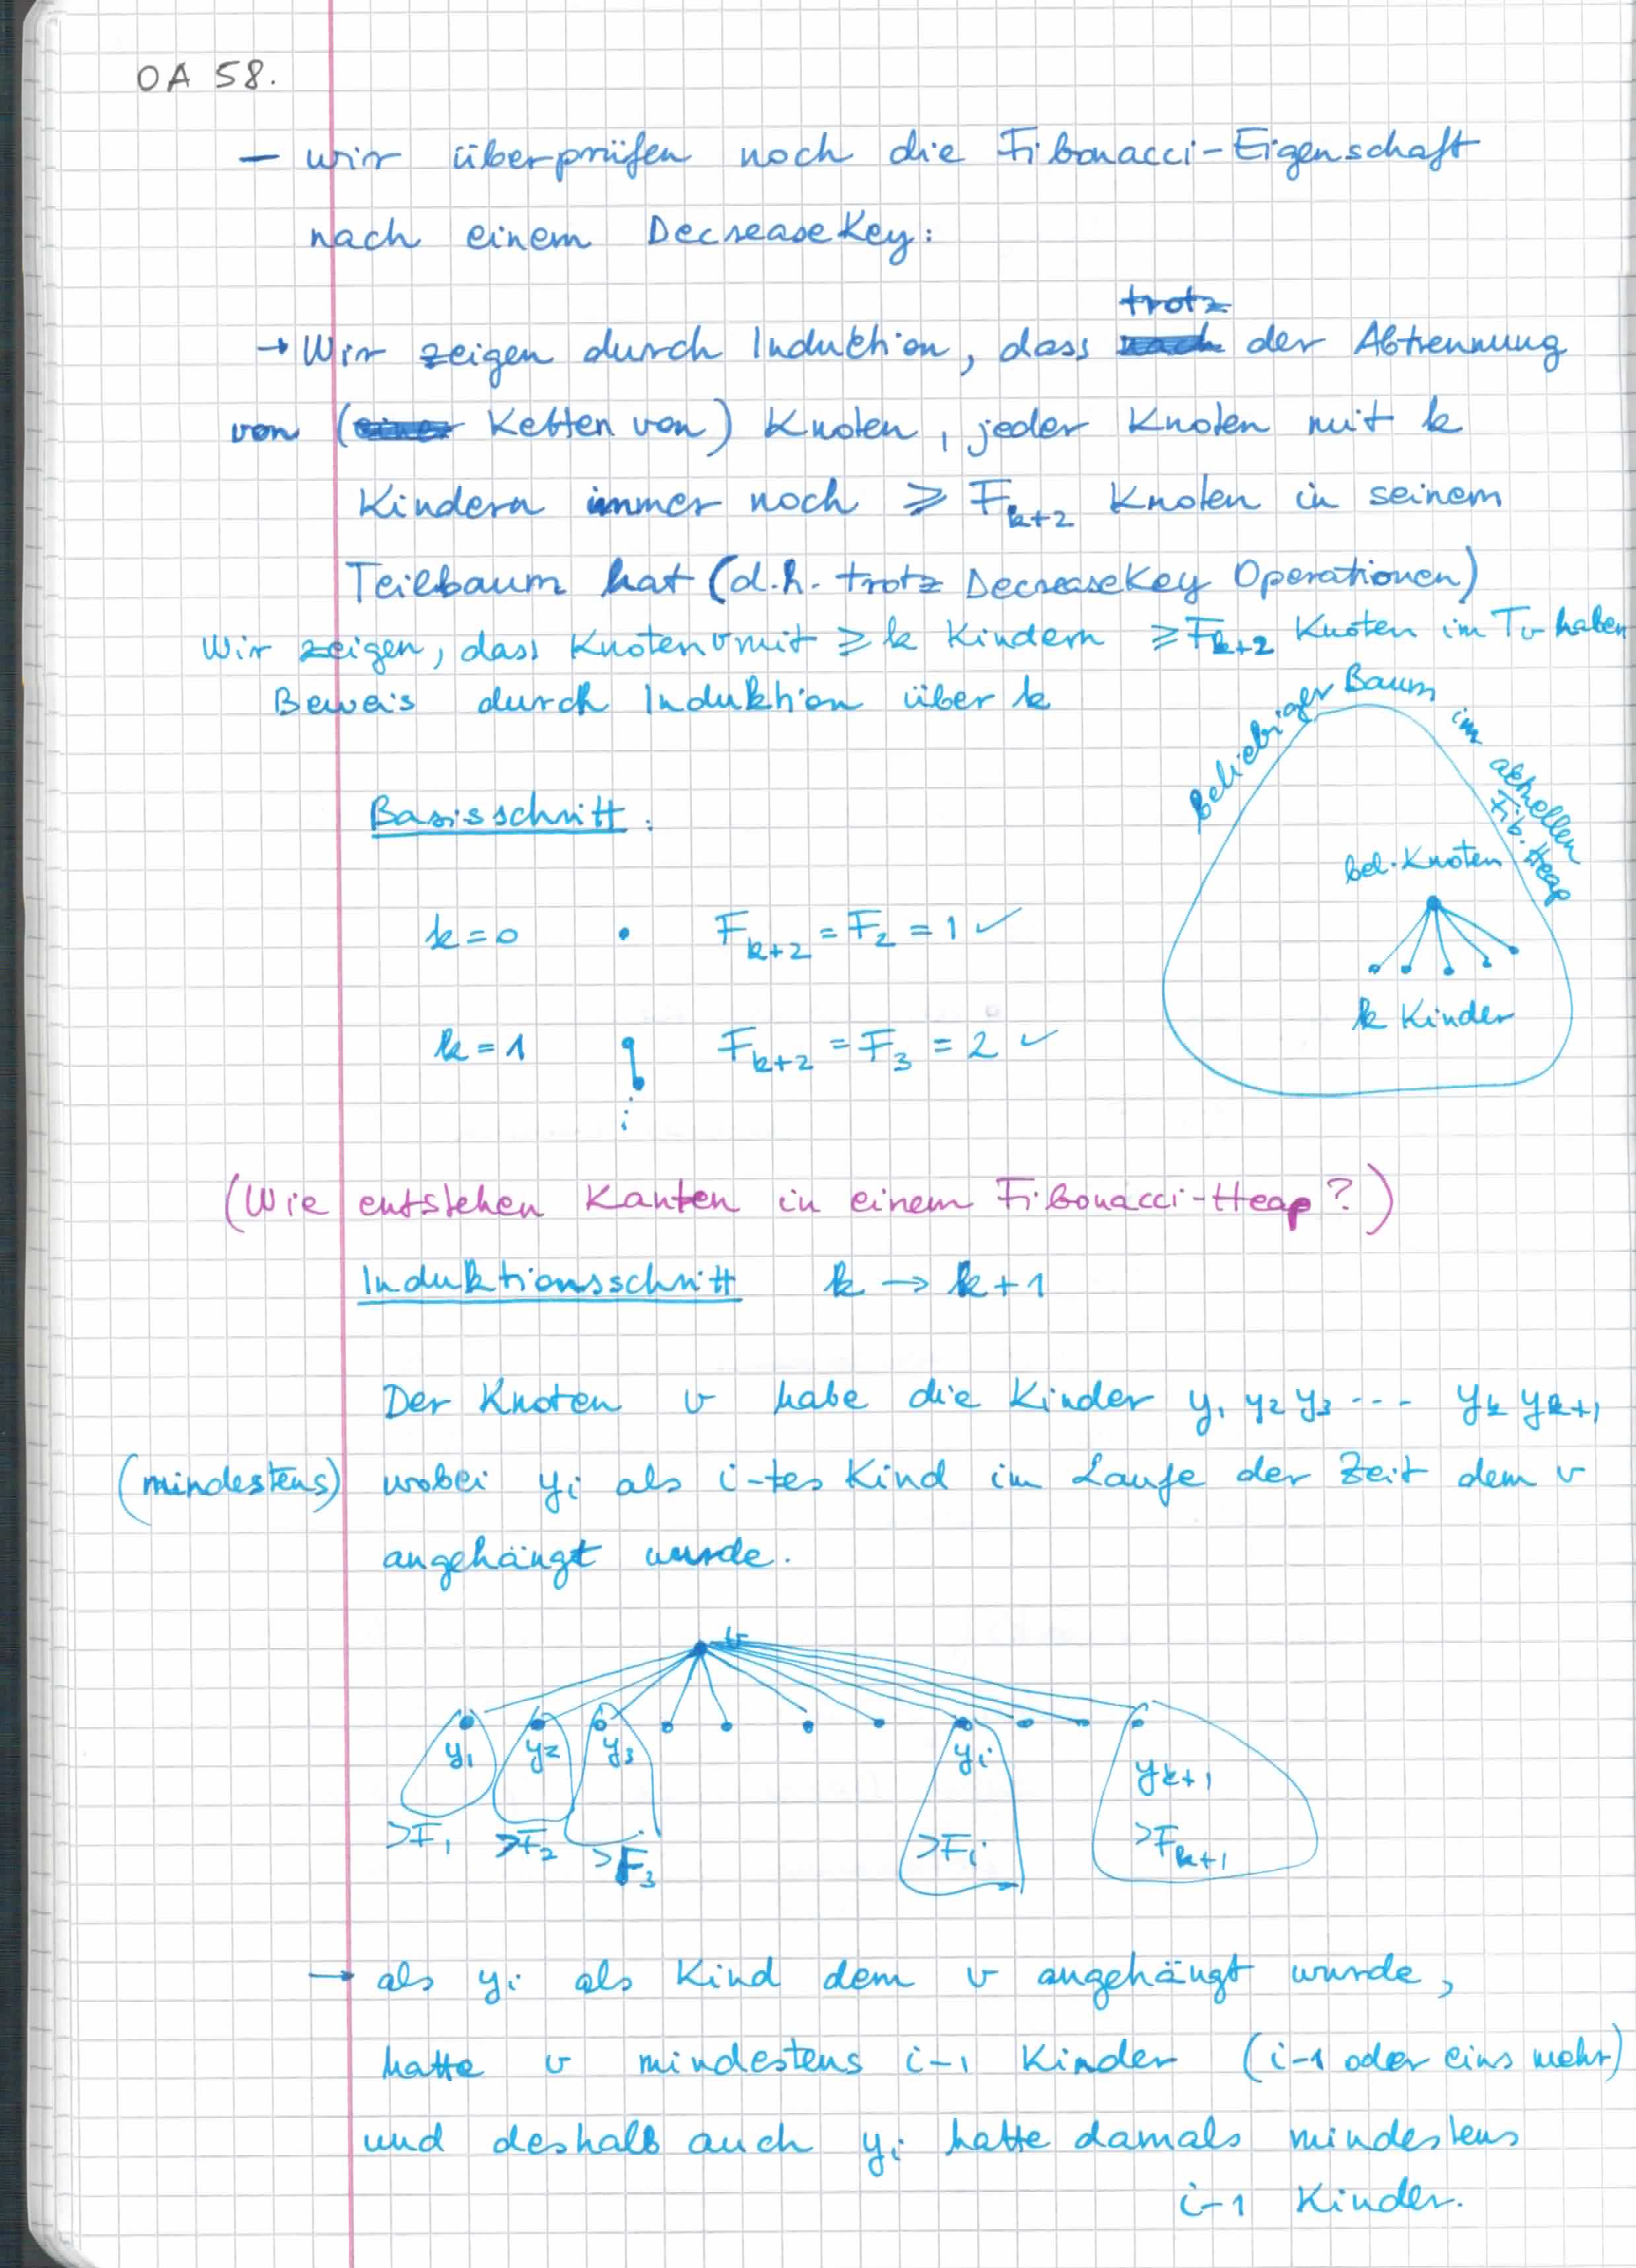 OA 58.
– wir überprüfen noch die Fibonacci-Eigenschaft
nach einem DecreaseKey:
trotz
→ Wir zeigen durch Induktion, dass nach der Abtrennung
von (einer Ketten von) Knoten, jeder Knoten mit k
Kindern immer noch ≥ F_{k+2} Knoten in seinem
Teilbaum hat (d.h. trotz DecreaseKey Operationen)
Wir zeigen, dass Knoten v mit ≥ k Kindern ≥ F_{k+2} Knoten im T_v haben
Beweis durch Induktion über k
Beliebiger Baum im aktuellen Fib. Heap
Basisschritt:
bel. Knoten
k=0 • F_{k+2} = F_2 = 1 ✓
k Kinder
k=1 F_{k+2} = F_3 = 2 ✓
(Wie entstehen Kanten in einem Fibonacci-Heap?)
Induktionsschritt k → k+1
Der Knoten v habe die Kinder y_1 y_2 y_3 --- y_k y_{k+1}
(mindestens) wobei y_i als i-tes Kind im Laufe der Zeit dem v
angehängt wurde.
v
y_1 y_2 y_3 y_i y_{k+1}
>F_1 >F_2 >F_3 >F_i >F_{k+1}
→ als y_i als Kind dem v angehängt wurde,
hatte v mindestens i-1 Kinder (i-1 oder eins mehr)
und deshalb auch y_i hatte damals mindestens
i-1 Kinder.